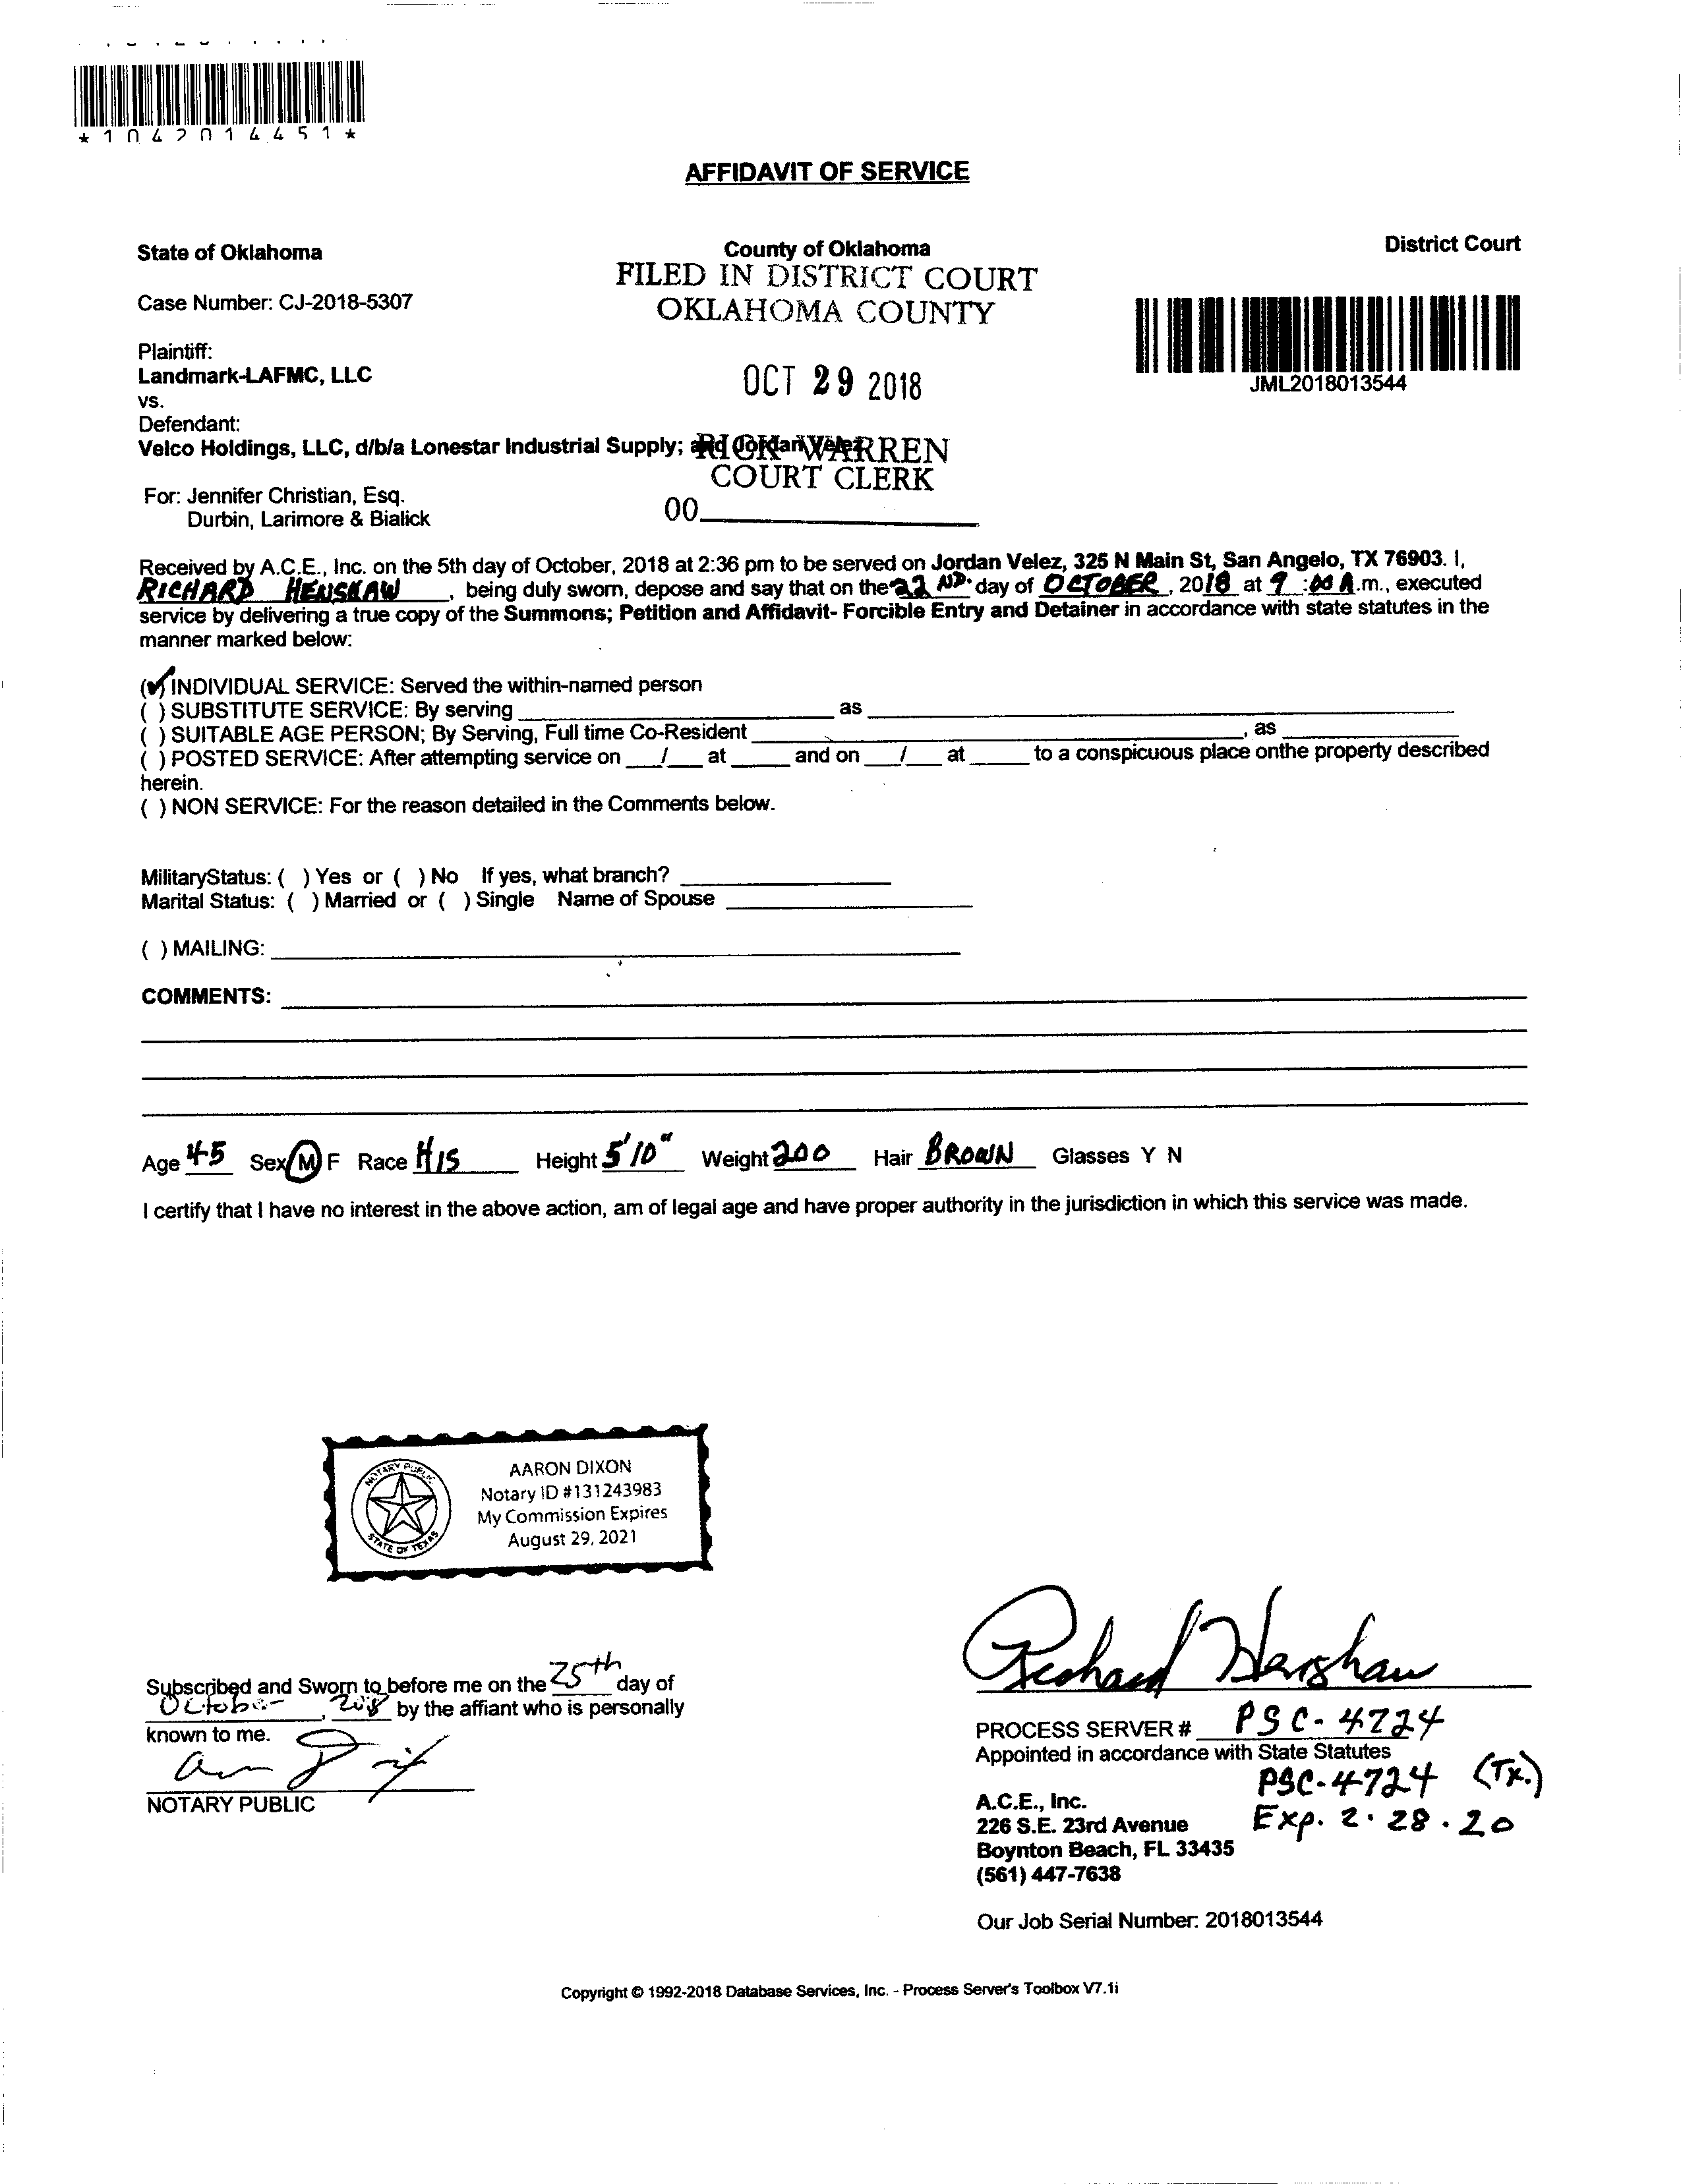 *1042014451*
AFFIDAVIT OF SERVICE
State of Oklahoma
County of Oklahoma
District Court
FILED IN DISTRICT COURT
OKLAHOMA COUNTY
Case Number: CJ-2018-5307
Plaintiff:
Landmark-LAFMC, LLC
OCT 29 2018
JML2018013544
vs.
Defendant:
Velco Holdings, LLC, d/b/a Lonestar Industrial Supply; and Jordan Velez
RICK WARREN
COURT CLERK
For: Jennifer Christian, Esq.
Durbin, Larimore & Bialick
00
Received by A.C.E., Inc. on the 5th day of October, 2018 at 2:36 pm to be served on Jordan Velez, 325 N Main St, San Angelo, TX 76903. I,
RICHARD HENSHAW, being duly sworn, depose and say that on the 22 ND. day of OCTOBER, 2018 at 9:00 A.m., executed
service by delivering a true copy of the Summons; Petition and Affidavit- Forcible Entry and Detainer in accordance with state statutes in the
manner marked below:
(✓) INDIVIDUAL SERVICE: Served the within-named person
( ) SUBSTITUTE SERVICE: By serving ____ as ____
( ) SUITABLE AGE PERSON; By Serving, Full time Co-Resident ____, as ____
( ) POSTED SERVICE: After attempting service on ___/___ at ____ and on ___/___ at ____ to a conspicuous place onthe property described
herein.
( ) NON SERVICE: For the reason detailed in the Comments below.
MilitaryStatus: ( ) Yes or ( ) No If yes, what branch? ____
Marital Status: ( ) Married or ( ) Single Name of Spouse ____
( ) MAILING: ____
COMMENTS: ____
Age 45 Sex M F Race HIS Height 5'10" Weight 200 Hair BROWN Glasses Y N
I certify that I have no interest in the above action, am of legal age and have proper authority in the jurisdiction in which this service was made.
NOTARY PUBLIC
STATE OF TEXAS
AARON DIXON
Notary ID #131243983
My Commission Expires
August 29, 2021
Subscribed and Sworn to before me on the 25th day of
October, 2018 by the affiant who is personally
known to me.
NOTARY PUBLIC
Richard Henshaw
PROCESS SERVER # PSC-4724
Appointed in accordance with State Statutes
PSC-4724 (TX.)
Exp. 2.28.20
A.C.E., Inc.
226 S.E. 23rd Avenue
Boynton Beach, FL 33435
(561) 447-7638
Our Job Serial Number: 2018013544
Copyright © 1992-2018 Database Services, Inc. - Process Server's Toolbox V7.1i